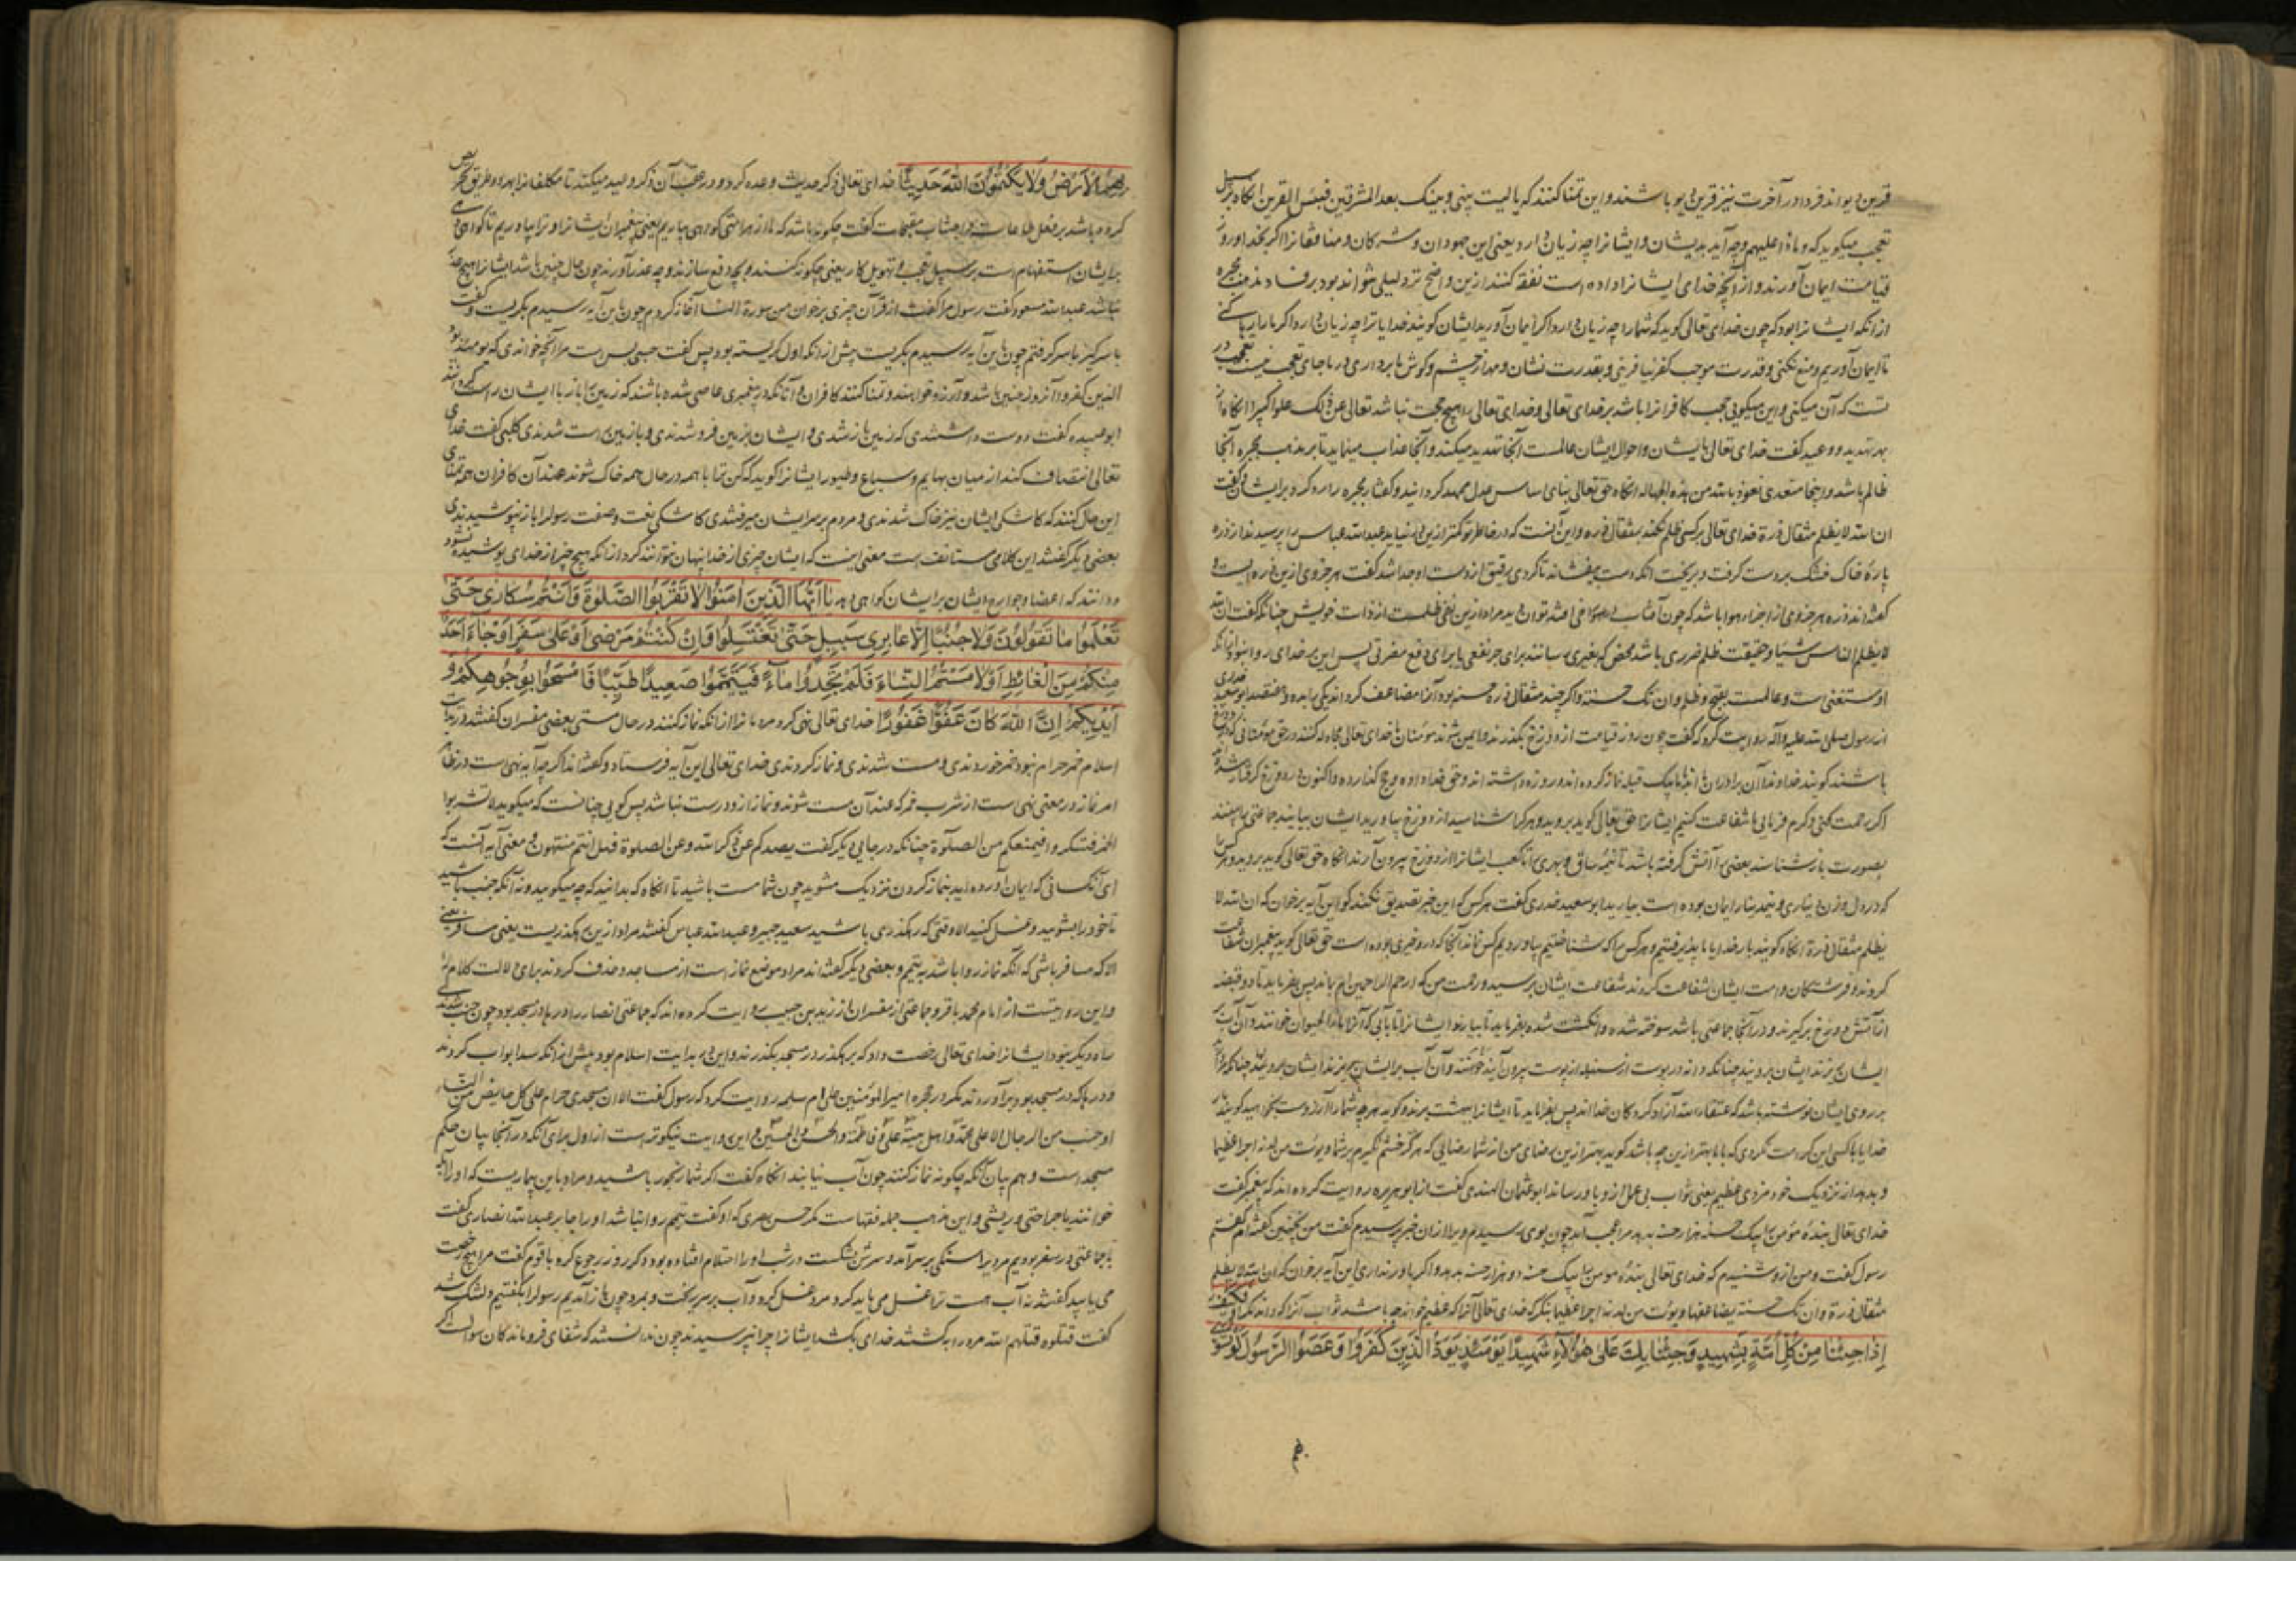 قرین دیو اند فردا در آخرت نیز قرین دیو باشند و این تمنا کنند که یا لیت بینی و بینک بعد المشرقین فبئس القرین انکاه بر سبیل
تعجب میکوید که و ماذا علیهم و چه آید بدیشان و ایشانرا چه زیان دارد یعنی این جهودان و مشرکان و منافقانرا اکر بخدا و روز
قیامت ایمان آورند و از آنچه خدای ایشانرا داده است نفقه کنند ازین واضح تر دلیلی نتواند بود بر فساد مذهب مجبره
از آنکه ایشانرا بود که چون خدای تعالی کوید که شما را چه زیان دارد اکر ایمان آورید ایشان کویند خدایا ترا چه زیان دارد اکر ما را
تا ایمان آوریم و منع نکنی و قدرت موجب کفر نیافرینی و بقدرت نشان و مهر از چشم و کوش ما برداری در ما جای تعجب نیست تعجب در
تست که آن میکنی و این میکویی تعجب کافرانرا باشد بر خدای تعالی و خدای تعالی را هیچ حجت نباشد تعالی عن ذلک علوا کبیرا انکاه از
بهر تهدید و وعید کفت خدای تعالی بایشان و احوال ایشان عالمست آنجا تهدید میکند و آنجا عذاب مینماید تا بر مذهب مجبره آنجا
ظالم باشد و اینجا متعدی نعوذ بالله من هذه الجهالة انکاه حق تعالی بنای اساس عدل ممهد کردانید و کفتار مجبره را رد کرد بر ایشان و کفت
ان الله لا یظلم مثقال ذرة خدای تعالی بر کسی ظلم نکند بمثقال ذره و این آنست که در خاطر تو کمتر ازین نیاید عبدالله عباس را پرسیدند از ذره
پارهٔ خاک خشک بر دست کرفت و بریخت آنکه دست بیفشاند تا کردی رقیق از دست او جدا شد کفت هر جزوی ازین ذره ایست و
کفته اند ذره هر جزوی از اجزاء هوا باشد که چون آفتاب در افتد توان دید مراد ازین نفی ظلمست از ذات خویش چنانکه کفت ان الله
لا یظلم الناس شیئا و حقیقت ظلم ضرری باشد محض که بغیری رسانند برای جر نفعی یا برای دفع مضرتی پس این بر خدای روا نبود زیرا که
او مستغنی است و عالمست بقبح و ظلم و ان تک حسنة و اکر چند مثقال ذره حسنه بود آنرا مضاعف کرداند یکی را ده و هفتصد ابو سعید خدری
از رسول صلی الله علیه و آله روایت کرد که کفت چون روز قیامت از دوزخ بکذرند و ایمن شوند مؤمنان با خدای تعالی مجادله کنند در حق مؤمنانی که در دوزخ
باشند کویند خداوندا آن برادران ما اند با ما بیک قبله نماز کرده اند و روزه داشته اند و حق خدا داده و حج کذارده و اکنون در دوزخ کرفتار شده
اکر رحمت کنی و کرم فرمایی ما شفاعت کنیم ایشانرا حق تعالی کوید بروید و هر کرا شناسید از دوزخ بیاورید ایشان بیایند جماعتی را بینند
بصورت باز شناسند بعضی را آتش کرفته باشد تا نیمهٔ ساق و بهری را تا کعب ایشانرا از دوزخ بیرون آرند انکاه حق تعالی کوید بروید و هر کس را
که در دل وزن دیناری و نیم دینار ایمان بوده است بیارید ابو سعید خدری کفت هر کس که این خبر تصدیق نکند کو این آیه برخوان که ان الله لا
یظلم مثقال ذرة انکاه کویند بار خدایا ما پذیرفتیم و هر کس را که شناختیم بیاوردیم کس نماند آنجا که درو خیری بوده است حق تعالی کوید پیغمبران شفاعت
کردند و فرشتکان و امت ایشان شفاعت کردند شفاعت ایشان برسید و رحمت من که ارحم الراحمین ام بماند پس بفرماید تا دو قبضه
از آتش دوزخ برکیرند و در آنجا جماعتی باشند سوخته شده و انکشت شده بفرماید تا بیارند ایشانرا تا بآبی که آنرا ماء الحیوان خوانند و آن آب
ایشان ریزند ایشان برویند چنانکه دانه در پوست از سنبله از پوست بیرون آیند و آن آب بر ایشان ریزند ایشان برویند چنانکه
بر روی ایشان نوشته باشد که عتقاء الله آزاد کردکان خدا اند پس بفرماید تا ایشانرا ببهشت برند و کوید هر چه شما را آرزوست بخواهید کویند بار
خدایا با کسی این کرامت نکردی که با ما بهتر ازین چه باشد کوید بهتر ازین رضای من از شما رضایی که هرکز خشم نکیرم بر شما و یؤت من لدنه اجرا عظیما
و بدهد از نزدیک خود مزدی عظیم یعنی ثواب بی عمل ازو باو رساند ابو عثمان الهندی کفت از ابو هریره روایت کرده اند که پیغمبر کفت
خدای تعالی بندهٔ مؤمن را بیک حسنه هزار حسنه بدهد مرا عجب آمد چون بوی رسیدم ویرا از آن خبر پرسیدم کفت من نچنین کفته ام کفتم
رسول کفت و من ازو شنیدم که خدای تعالی بندهٔ مومن را بیک حسنه دو هزار حسنه بدهد و اکر باور نداری این آیه برخوان که ان الله لا یظلم
مثقال ذرة و ان تک حسنة یضاعفها و یؤت من لدنه اجرا عظیما بنکر که خدای تعالی آنرا که عظیم خواند چه باشد ثواب آنرا که داند مکر او فکیف
إِذَا جِئْنَا مِنْ كُلِّ أُمَّةٍ بِشَهِيدٍ وَجِئْنَا بِكَ عَلَىٰ هٰؤُلَاءِ شَهِيدًا يَوْمَئِذٍ يَوَدُّ الَّذِينَ كَفَرُوا وَعَصَوُا الرَّسُولَ لَوْ تُسَوَّىٰ
بهم
بِهِمُ الْأَرْضُ وَلَا يَكْتُمُونَ اللَّهَ حَدِيثًا خدای تعالی ذکر حدیث وعده کرد و در عقب آن ذکر وعید میکند تا مکلفانرا بهر دو طریق تحریص
کرده باشد بر فعل طاعات و اجتناب مقبحات کفت چکونه باشد که ما از هر امتی کواهی بیاریم یعنی پیغمبران ایشانرا و ترا بیاوریم تا کواهی دهی
بر ایشان استفهام است بر سبیل تعجب و تهویل کار یعنی چکونه کنند و بچه دفع سازند و چه عذر آورند چون حال چنین باشد ایشانرا هیچ عذر
نباشد عبدالله مسعود کفت رسول مرا کفت از قرآن چیزی برخوان من سورة النسا آغاز کردم چون باین آیه رسیدم بکریست و کفت
با سر کیر با سر کرفتم چون باین آیه رسیدم بکریست بیش از آنکه اول کریسته بود پس کفت حسبی بس است مرا آنچه خواندی که یومئذ یود
الذین کفروا آنروز چنین باشد و آرزو خواهند و تمنا کنند کافران و آنانکه در پیغمبری عاصی شده باشند که زمین را باز با ایشان راست کردانند
ابو عبیده کفت دوست داشتندی که زمین باز شدی و ایشان بزمین فرو شدندی و باز زمین راست شدندی کلبی کفت خدای
تعالی انتصاف کند از میان بهایم و سباع و طیور ایشانرا کوید که کن ترابا همه در حال همه خاک شوند عند آن کافران همه تمنای
این حال کنند که کاشکی ایشان نیز خاک شدندی و مردم بر سر ایشان میرفتندی کاشکی نعت و صفت رسول را باز نپوشیدندی
بعضی دیکر کفتند این کلامی مستانف است معنی اینست که ایشان چیزی از خدا پنهان نتوانند کرد از آنکه هیچ چیز از خدای پوشیده نشود
و دانند که اعضا و جوارح ایشان بر ایشان کواهی دهد يَا أَيُّهَا الَّذِينَ آمَنُوا لَا تَقْرَبُوا الصَّلٰوةَ وَأَنْتُمْ سُكَارَىٰ حَتَّىٰ
تَعْلَمُوا مَا تَقُولُونَ وَلَا جُنُبًا إِلَّا عَابِرِي سَبِيلٍ حَتَّىٰ تَغْتَسِلُوا وَإِنْ كُنْتُمْ مَرْضَىٰ أَوْ عَلَىٰ سَفَرٍ أَوْ جَاءَ أَحَدٌ
مِنْكُمْ مِنَ الْغَائِطِ أَوْ لَامَسْتُمُ النِّسَاءَ فَلَمْ تَجِدُوا مَاءً فَتَيَمَّمُوا صَعِيدًا طَيِّبًا فَامْسَحُوا بِوُجُوهِكُمْ وَ
أَيْدِيكُمْ إِنَّ اللَّهَ كَانَ عَفُوًّا غَفُورًا خدای تعالی نهی کرد مردمانرا از آنکه نماز کنند در حال مستی بعضی مفسران کفتند در بدایت
اسلام خمر حرام نبود خمر خوردندی و مست شدندی و نماز کردندی خدای تعالی این آیه فرستاد و کفته اند اکر چه آیه نهی است در ظاهر
امر نماز در معنی نهی است از شرب خمر که عند آن مست شوند و نماز ازو درست نباشد پس کویی چنانست که میکوید لا تشربوا
الخمر فتسکروا فیمنعکم من الصلوة چنانکه در جایی دیکر کفت یصدکم عن ذکر الله و عن الصلوة فهل انتم منتهون و معنی آیه آنست که
ای آنکسانی که ایمان آورده اید بنماز کردن نزدیک مشوید چون شما مست باشید تا انکاه که بدانید که چه میکویید و نه آنکه جنب باشید
تا خود را بشویید و غسل کنید الا وقتی که رهکذری باشید سعید جبیر و عبدالله عباس کفتند مراد ازین رهکذریست یعنی مسافر یعنی
الا که مسافر باشی که آنکه نماز روا باشد به تیمم و بعضی دیکر کفته اند مراد موضع نماز است از مساجد و حذف کردند برای دلالت کلام را
و این روایتست از امام محمد باقر و جماعتی از مفسران از زید بن حبیب روایت کرده اند که جماعتی انصار را در ها در مسجد بود چون جنب شدندی
راه دیکر نبود ایشانرا خدای تعالی رخصت داد که برهکذر در مسجد بکذرند و این در بدایت اسلام بود پیش از آنکه سد ابواب کردند
و در ها که در مسجد بود برآوردند مکر در حجره امیر المؤمنین علی ام سلمه روایت کرد که رسول کفت الا ان مسجدی حرام علی کل حایض من النساء
او جنب من الرجال الا علی محمد و اهل بیته علی و فاطمة و الحسن و الحسین و این روایت نیکوتر است از اول برای آنکه در آنجا بیان حکم
مسجد است و هم بیان آنکه چکونه نماز کنند چون آب نیابند انکاه کفت اکر شما رنجور باشید و مراد باین بیماریست که او را آبله
خوانند یا جراحتی و ریشی و این مذهب جمله فقهاست مکر حسن بصری که او کفت تیمم روا نباشد او را جابر عبدالله انصاری کفت
با جماعتی در سفر بودیم مردیرا سنکی بر سر آمد و سرش بشکست در شب او را احتلام افتاده بود دکر روز رجوع کرد با قوم کفت مرا هیچ رخصت
می یابید کفتند نه آب هست ترا غسل می باید کرد مرد غسل کرد و آب بر سر ریخت و بمرد چون باز آمدیم رسول را بکفتیم دلتنک شد
کفت قتلوه قتلهم الله مرد را بکشتند خدای بکشد ایشانرا چرا نپرسیدند چون ندانستند که شفای فروماندکان سوالست اکر